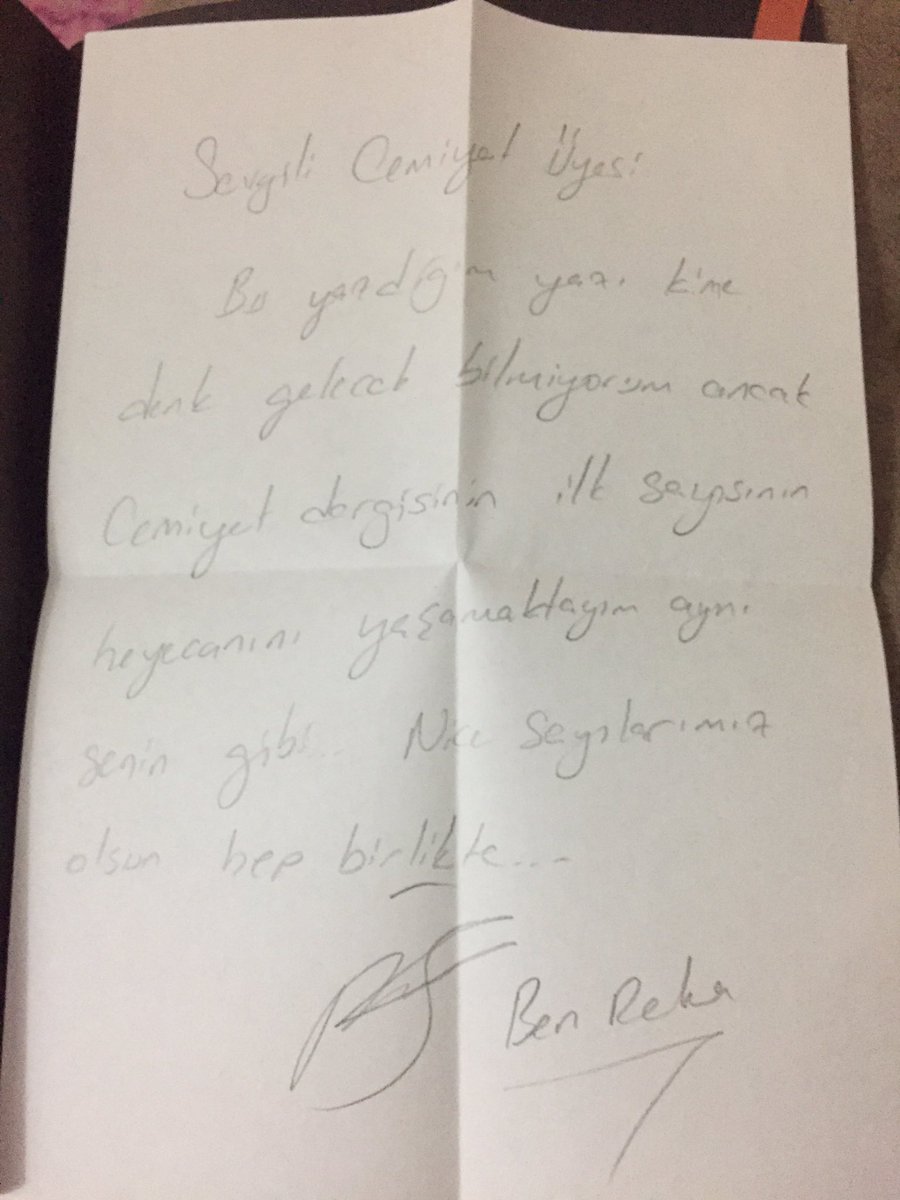 Sevgili Cemiyet Üyesi
Bu yazdığım yazı kime
denk gelecek bilmiyorum ancak
Cemiyet dergisinin ilk sayısının
heyecanını yaşamaktayım aynı
senin gibi... Nice sayılarımız
olsun hep birlikte...
Ben Reha